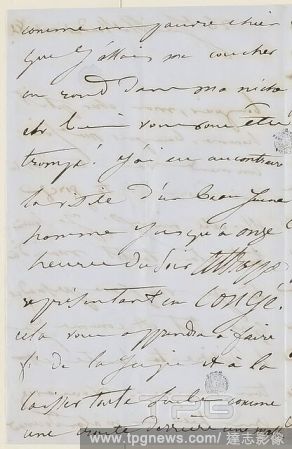 comme un pauvre chien
que j'allais me coucher
en rond dans ma niche
eh bien vous vous êtes
trompé! j'ai eu au contraire
la visite d'un beau jeune
homme jusqu'à onze
heures du soir
représentant en CONGÉ!
cela vous apprendra à faire
et à la
laisser toute seule comme
une croute derrière une malle
TPG
www.tpgnews.com 達志影像